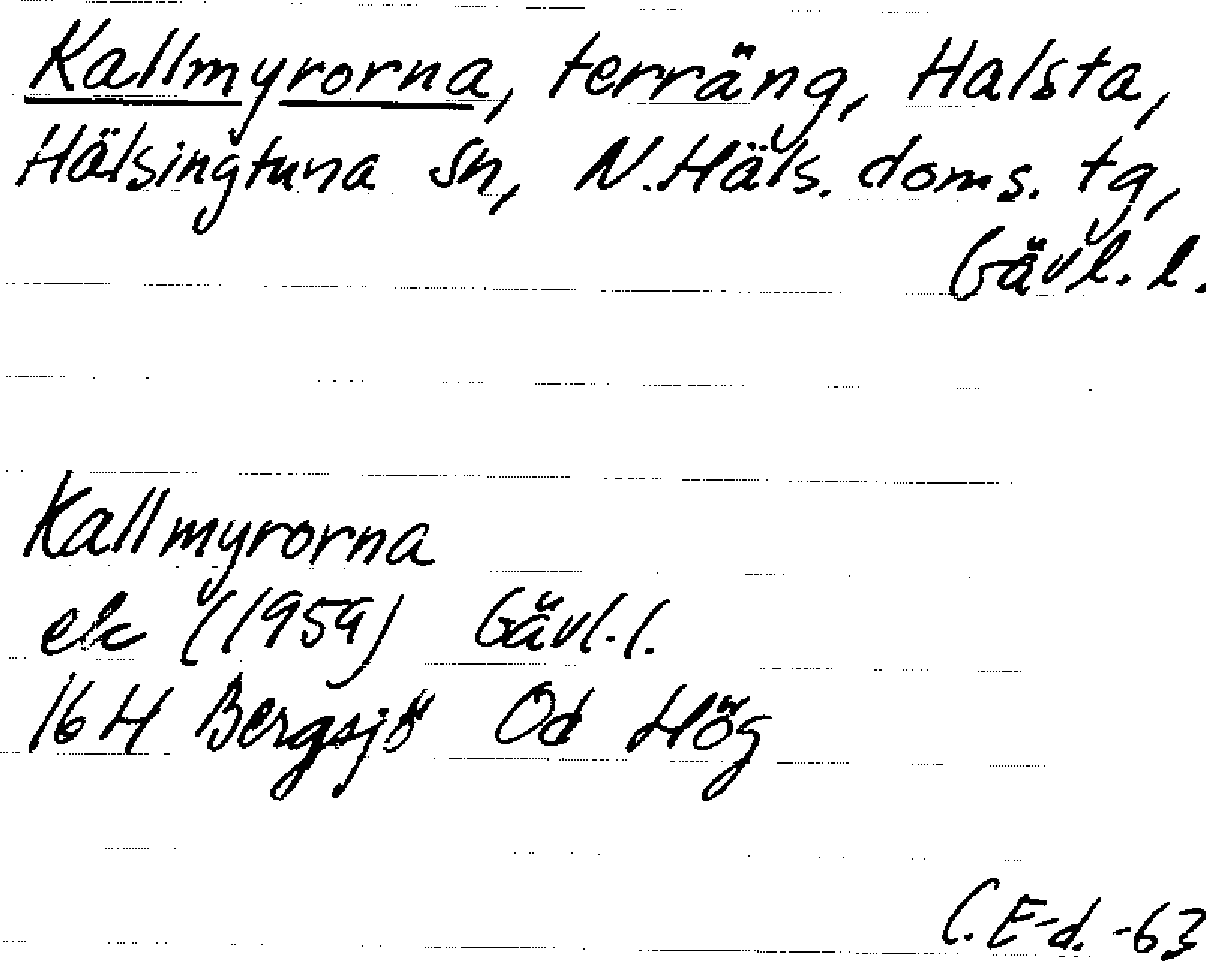 Kallmyrorna, terräng, Halsta,
Hälsingtuna sn, N. Häls. doms. tg,
Gävl. l.
Kallmyrorna
ek (1959) Gävl. l.
16 H Bergsjö Od Hög
C. E-d. -63